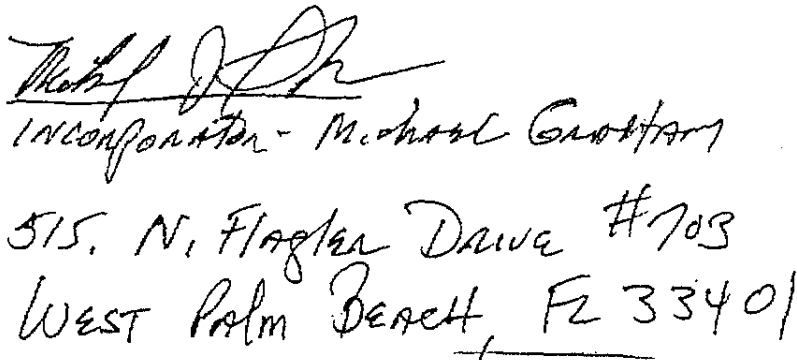 Incorporator - Michael Graham
515. N. Flagler Drive #703
West Palm Beach, FL 33401